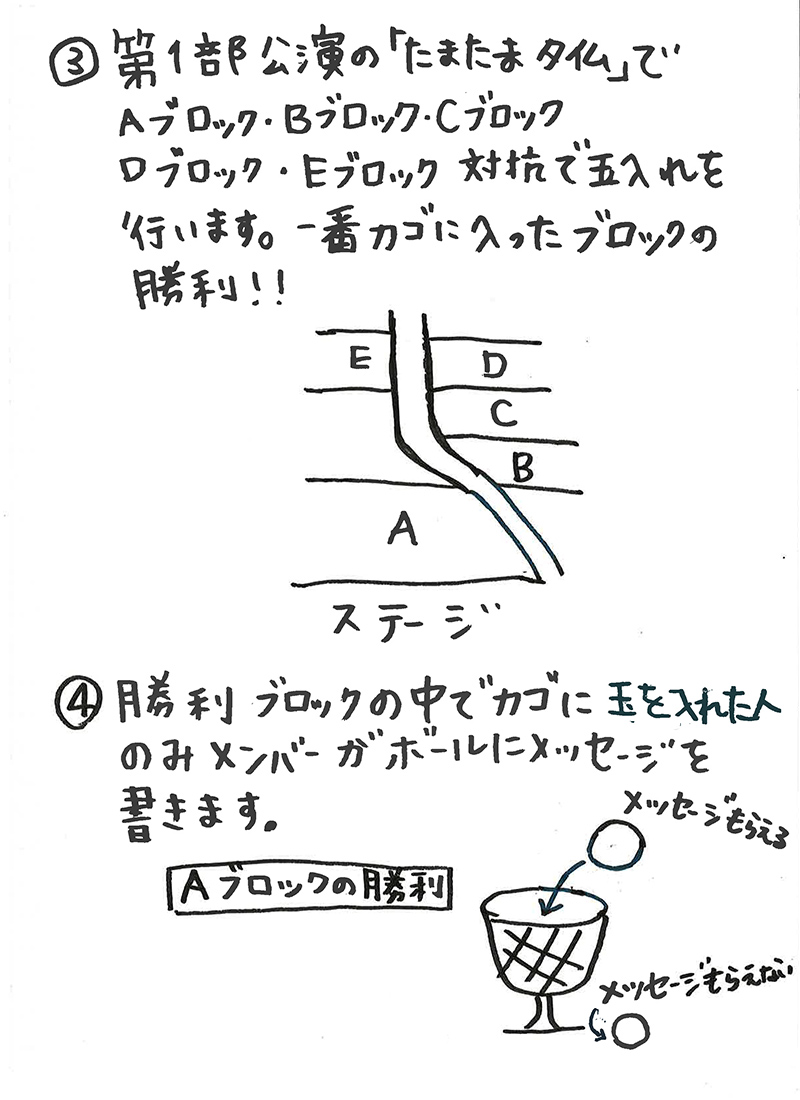 ③ 第1部公演の「たまたまタイム」で
Aブロック・Bブロック・Cブロック
Dブロック・Eブロック 対抗で玉入れを
行います。一番カゴに入ったブロックの
勝利!!
E
D
C
B
A
ステージ
④ 勝利ブロックの中でカゴに玉を入れた人
のみメンバーがボールにメッセージを
書きます。
メッセージもらえる
Aブロックの勝利
メッセージもらえない